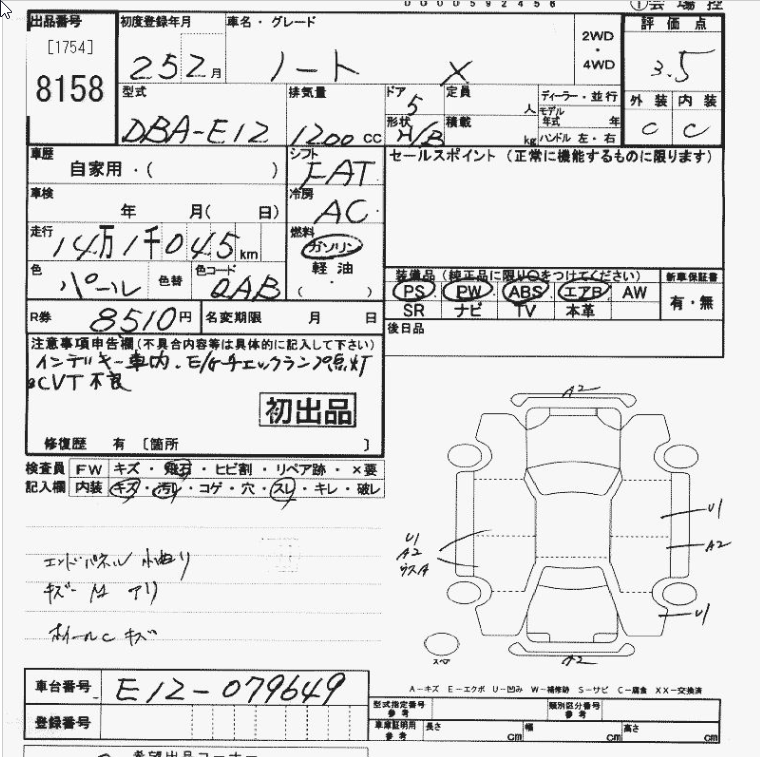 出品番号 初度登録年月 車名・グレード 2WD・4WD 評価点
[1754]
8158
25 2月 ノート X 3.5
型式 排気量 ドア 定員 ディーラー・並行 外装 内装
5 人 モデル年式 年
DBA-E12 1200cc 形状 H/B 積載 kg ハンドル 左・右 C C
車歴 シフト セールスポイント(正常に機能するものに限ります)
自家用・( ) FAT
車検 冷房
年 月( 日) AC
走行 燃料
14万1千045km ガソリン
軽油
( )
色 パール 色替 色コード QAB
装備品(純正品に限り○をつけてください) 新車保証書
PS PW ABS エアB AW 有・無
SR ナビ TV 本革
R券 8510円 名変期限 月 日
後日品
注意事項申告欄(不具合内容等は具体的に記入して下さい)
インテリキー車内、E/Gチェックランプ点灯
CVT不良
初出品
修復歴 有 〔箇所 〕
検査員 FW キズ・飛石・ヒビ割・リペア跡・×要
記入欄 内装 キズ・汚れ・コゲ・穴・スレ・キレ・破レ
A2
U1
A2
U1
A2
ウスA
エンドパネル
キズ アリ
U1
ホイールC キズ
スペア
A2
A-キズ E-エクボ U-凹み W-補修跡 S-サビ C-腐食 XX-交換済
車台番号 E12-079649
型式指定番号 参考 類別区分番号 参考
登録番号
車庫証明用 参考 長さ cm 幅 cm 高さ cm
希望出品コーナー